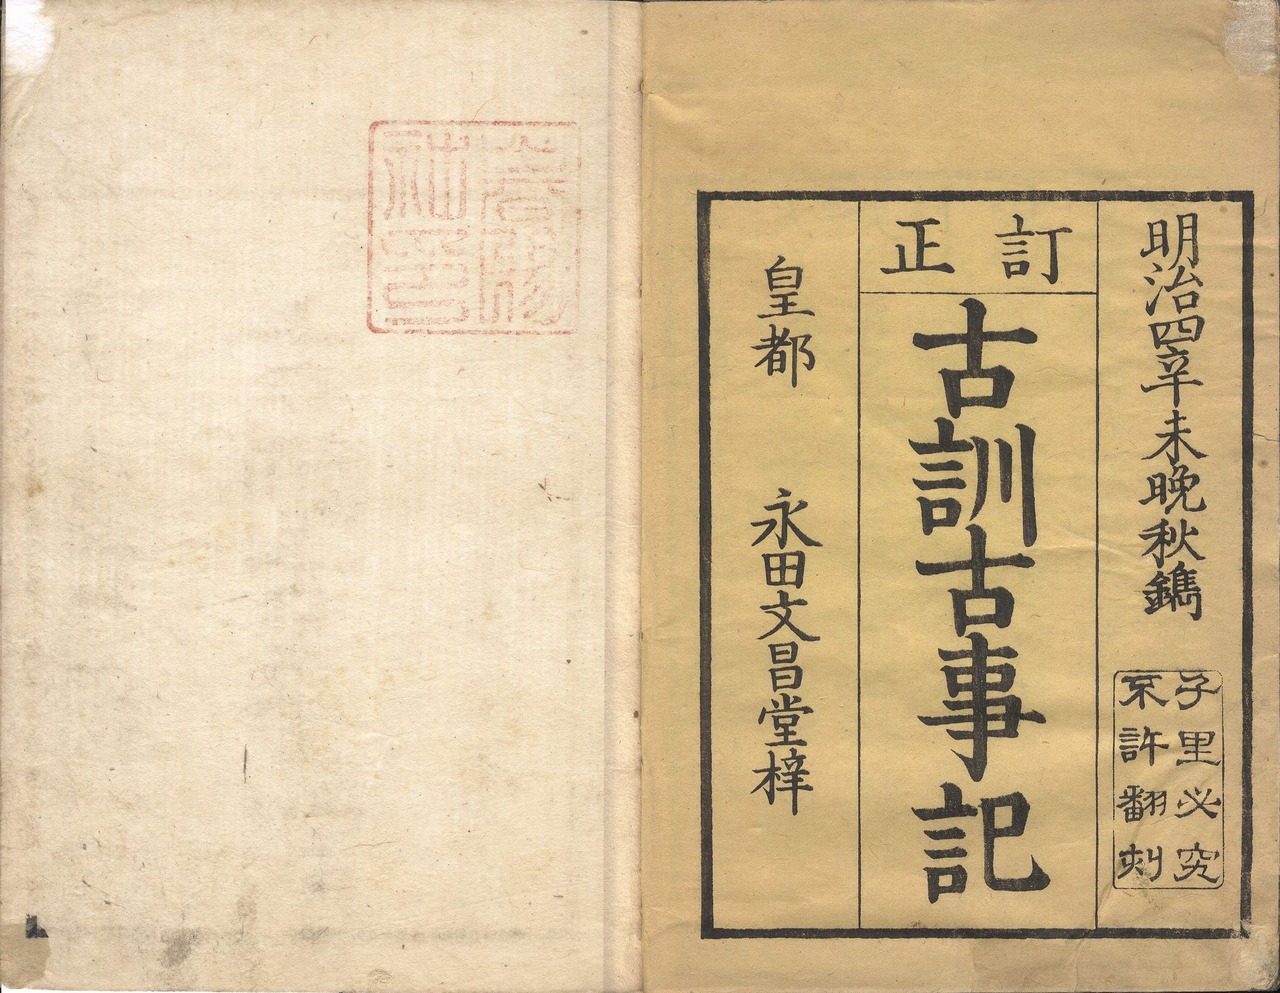 明治四辛未晩秋鐫
千里必究
不許翻刻
訂正
古訓古事記
皇都 永田文昌堂梓